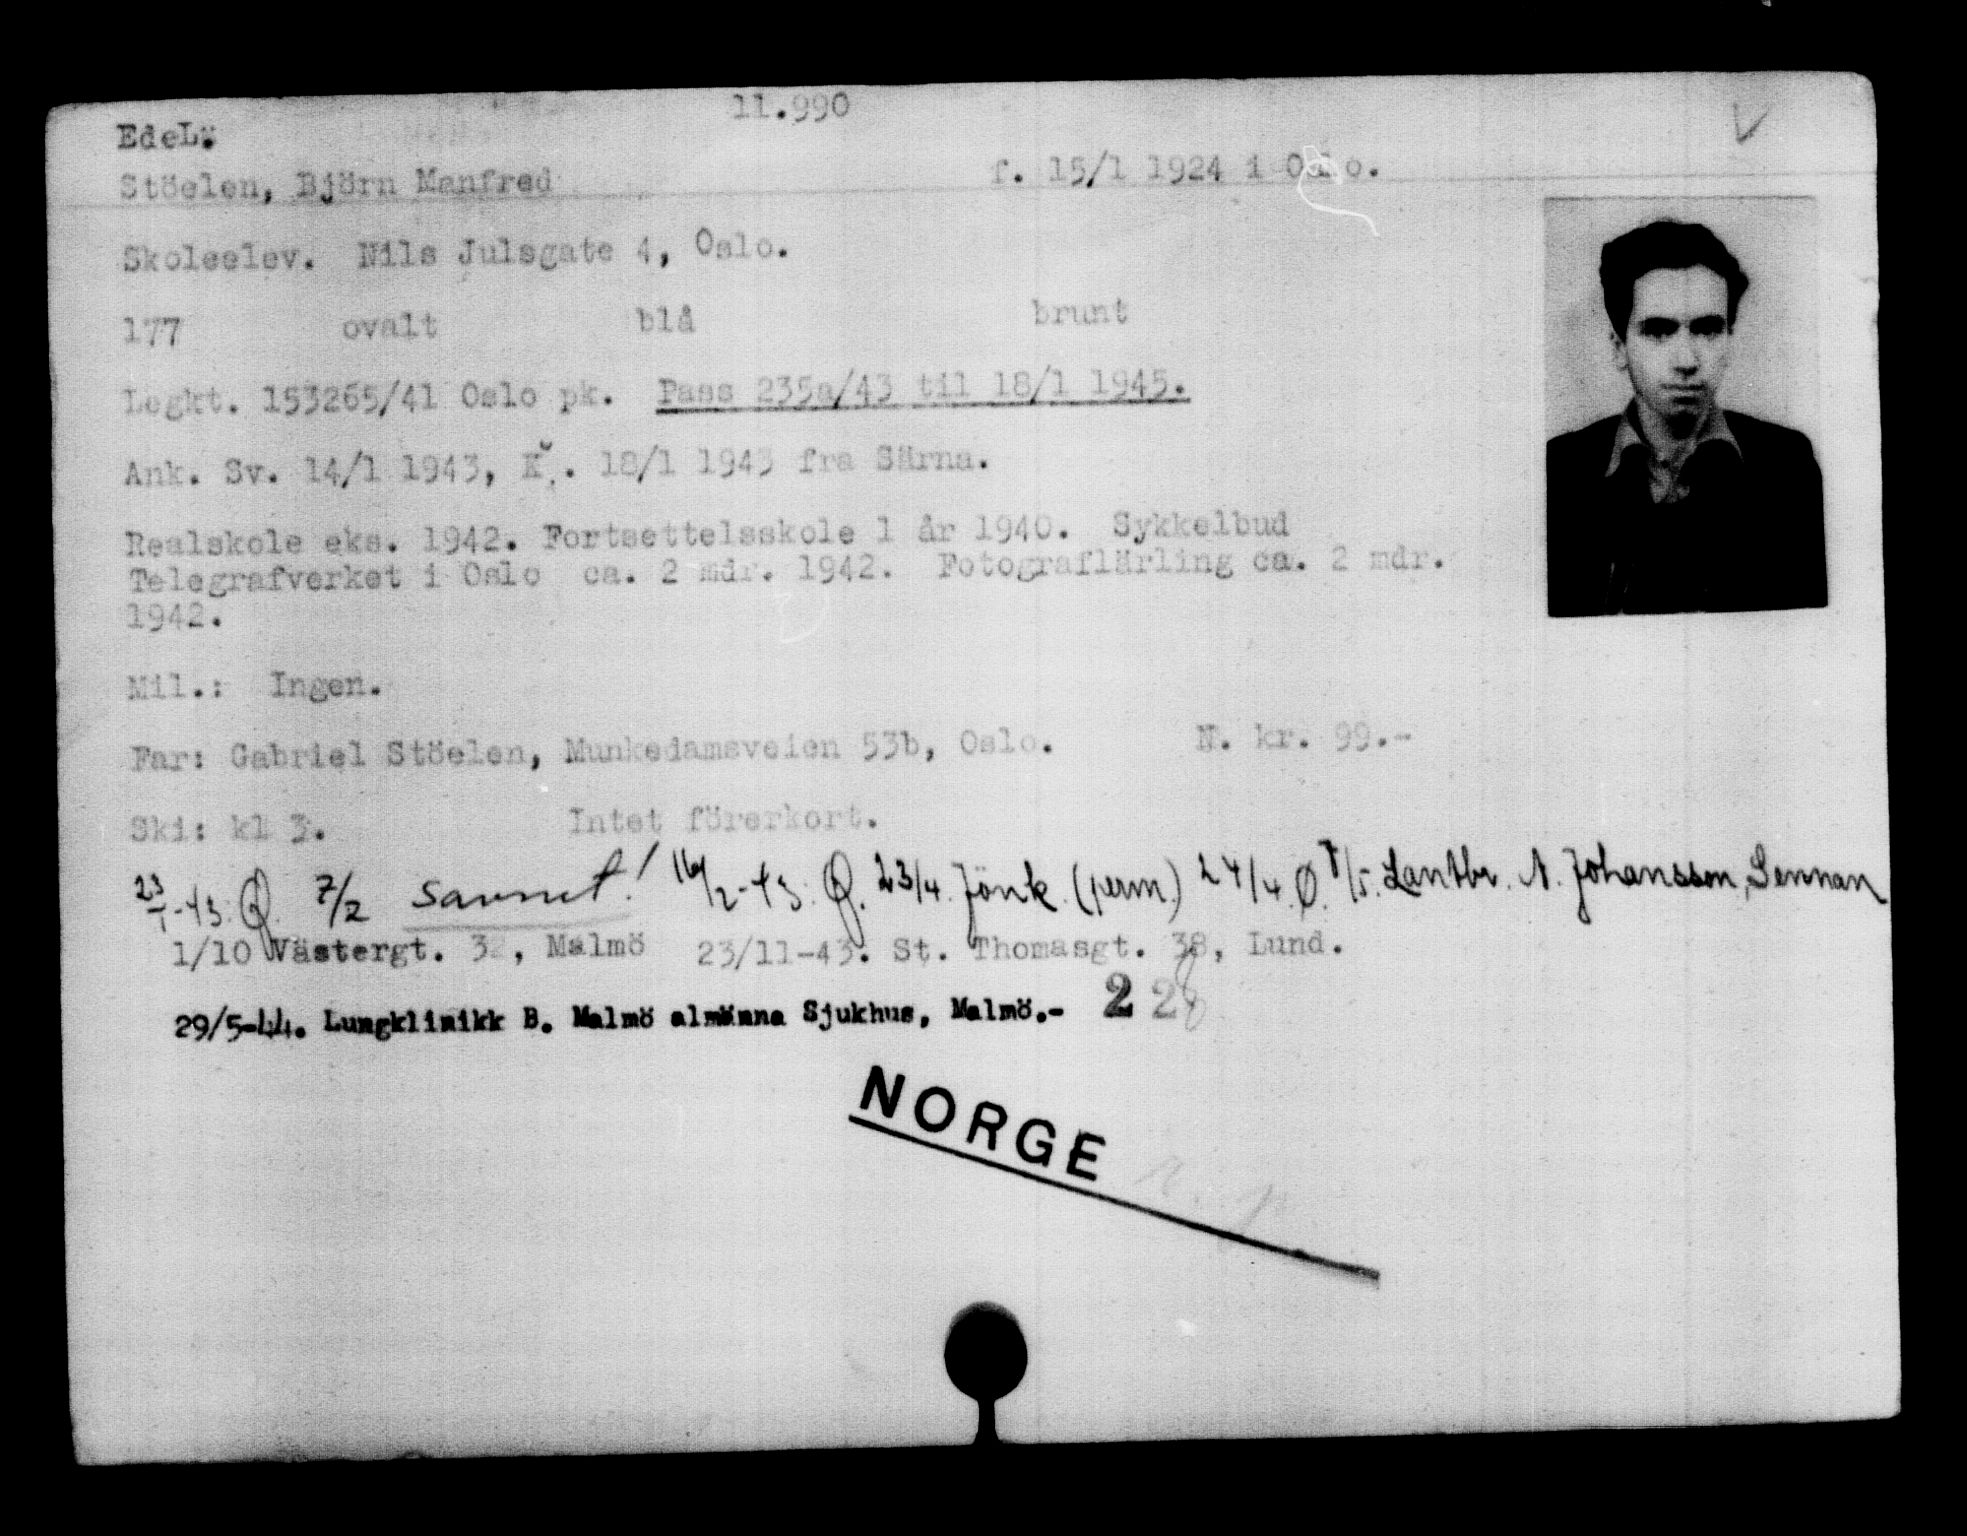 11.990
EdeLö
Stöelen, Björn Manfred f. 15/1 1924 i Oslo.
Skoleelev. Nils Julsgate 4, Oslo.
177 ovalt blå brunt
Legkt. 153265/41 Oslo pk. Pass 235a/43 til 18/1 1945.
Ank. Sv. 14/1 1943, K. 18/1 1943 fra Särna.
Realskole eks. 1942. Fortsettelsskole 1 år 1940. Sykkelbud
Telegrafverket i Oslo ca. 2 mdr. 1942. Fotograflärling ca. 2 mdr.
1942.
Mil.: Ingen.
Far: Gabriel Stöelen, Munkedamsveien 53b, Oslo. N. kr. 99.-
Ski: kl 3. Intet förerkort.
23/1-43. Q. 7/2 savnet! 16/2-43. Q. 23/4 Jönk. (perm.) 24/4 Ø. 7/5. Lantbr. N. Johansson, Sennan
1/10 Västergt. 32, Malmö 23/11-43. St. Thomasgt. 38, Lund.
29/5-44. Lungklinikk B. Malmö almänna Sjukhus, Malmö.- 2 28
NORGE